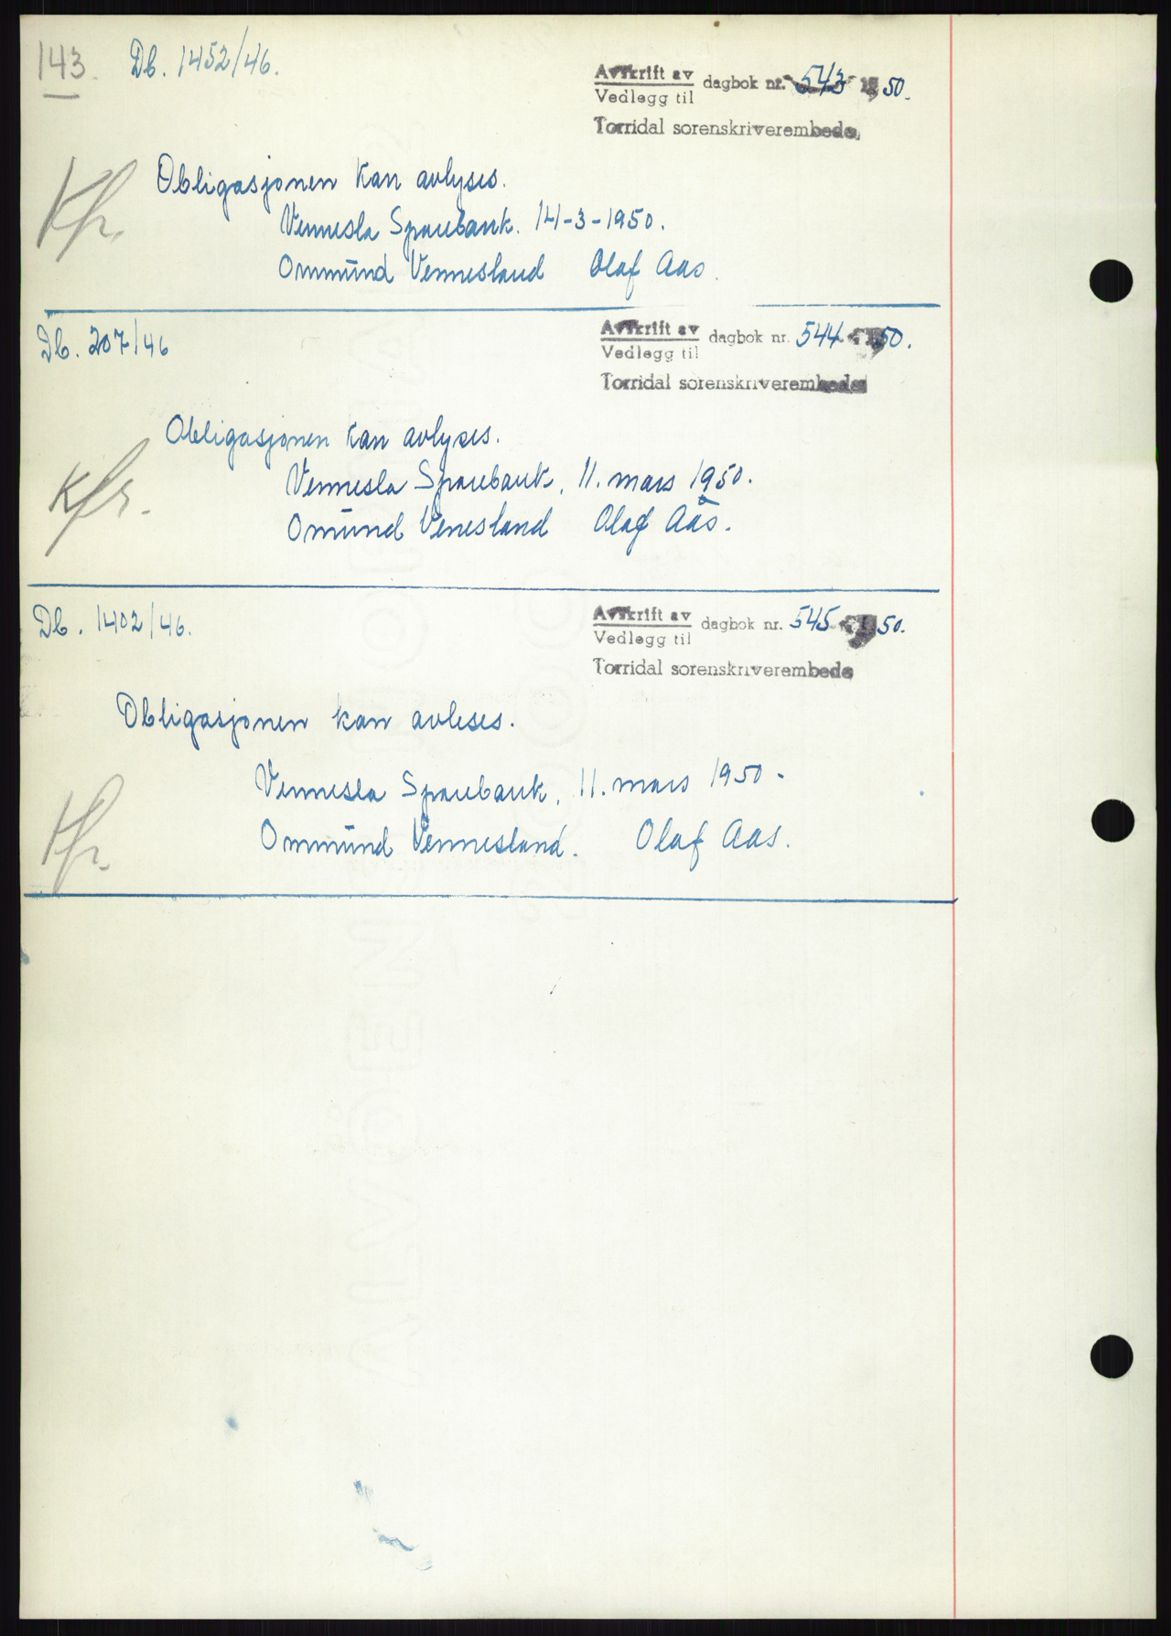 143. Db. 1452/46.
Avskrift av
Vedlegg til
dagbok nr. 543 50.
Torridal sorenskriverembede
Obligasjonen kan avlyses.
Kfr.
Vennesla Sparebank. 14-3-1950.
Ommund Vennesland Olaf Aas.
Db. 207/46
Avskrift av
Vedlegg til
dagbok nr. 544 50.
Torridal sorenskriverembede
Obligasjonen kan avlyses.
Kfr.
Vennesla Sparebank, 11. mars 1950.
Omund Venesland Olaf Aas.
Db. 1402/46.
Avskrift av
Vedlegg til
dagbok nr. 545 50.
Torridal sorenskriverembede
Obligasjonen kan avleses.
Vennesla Sparebank, 11. mars 1950.
Kfr.
Ommund Vennesland. Olaf Aas.